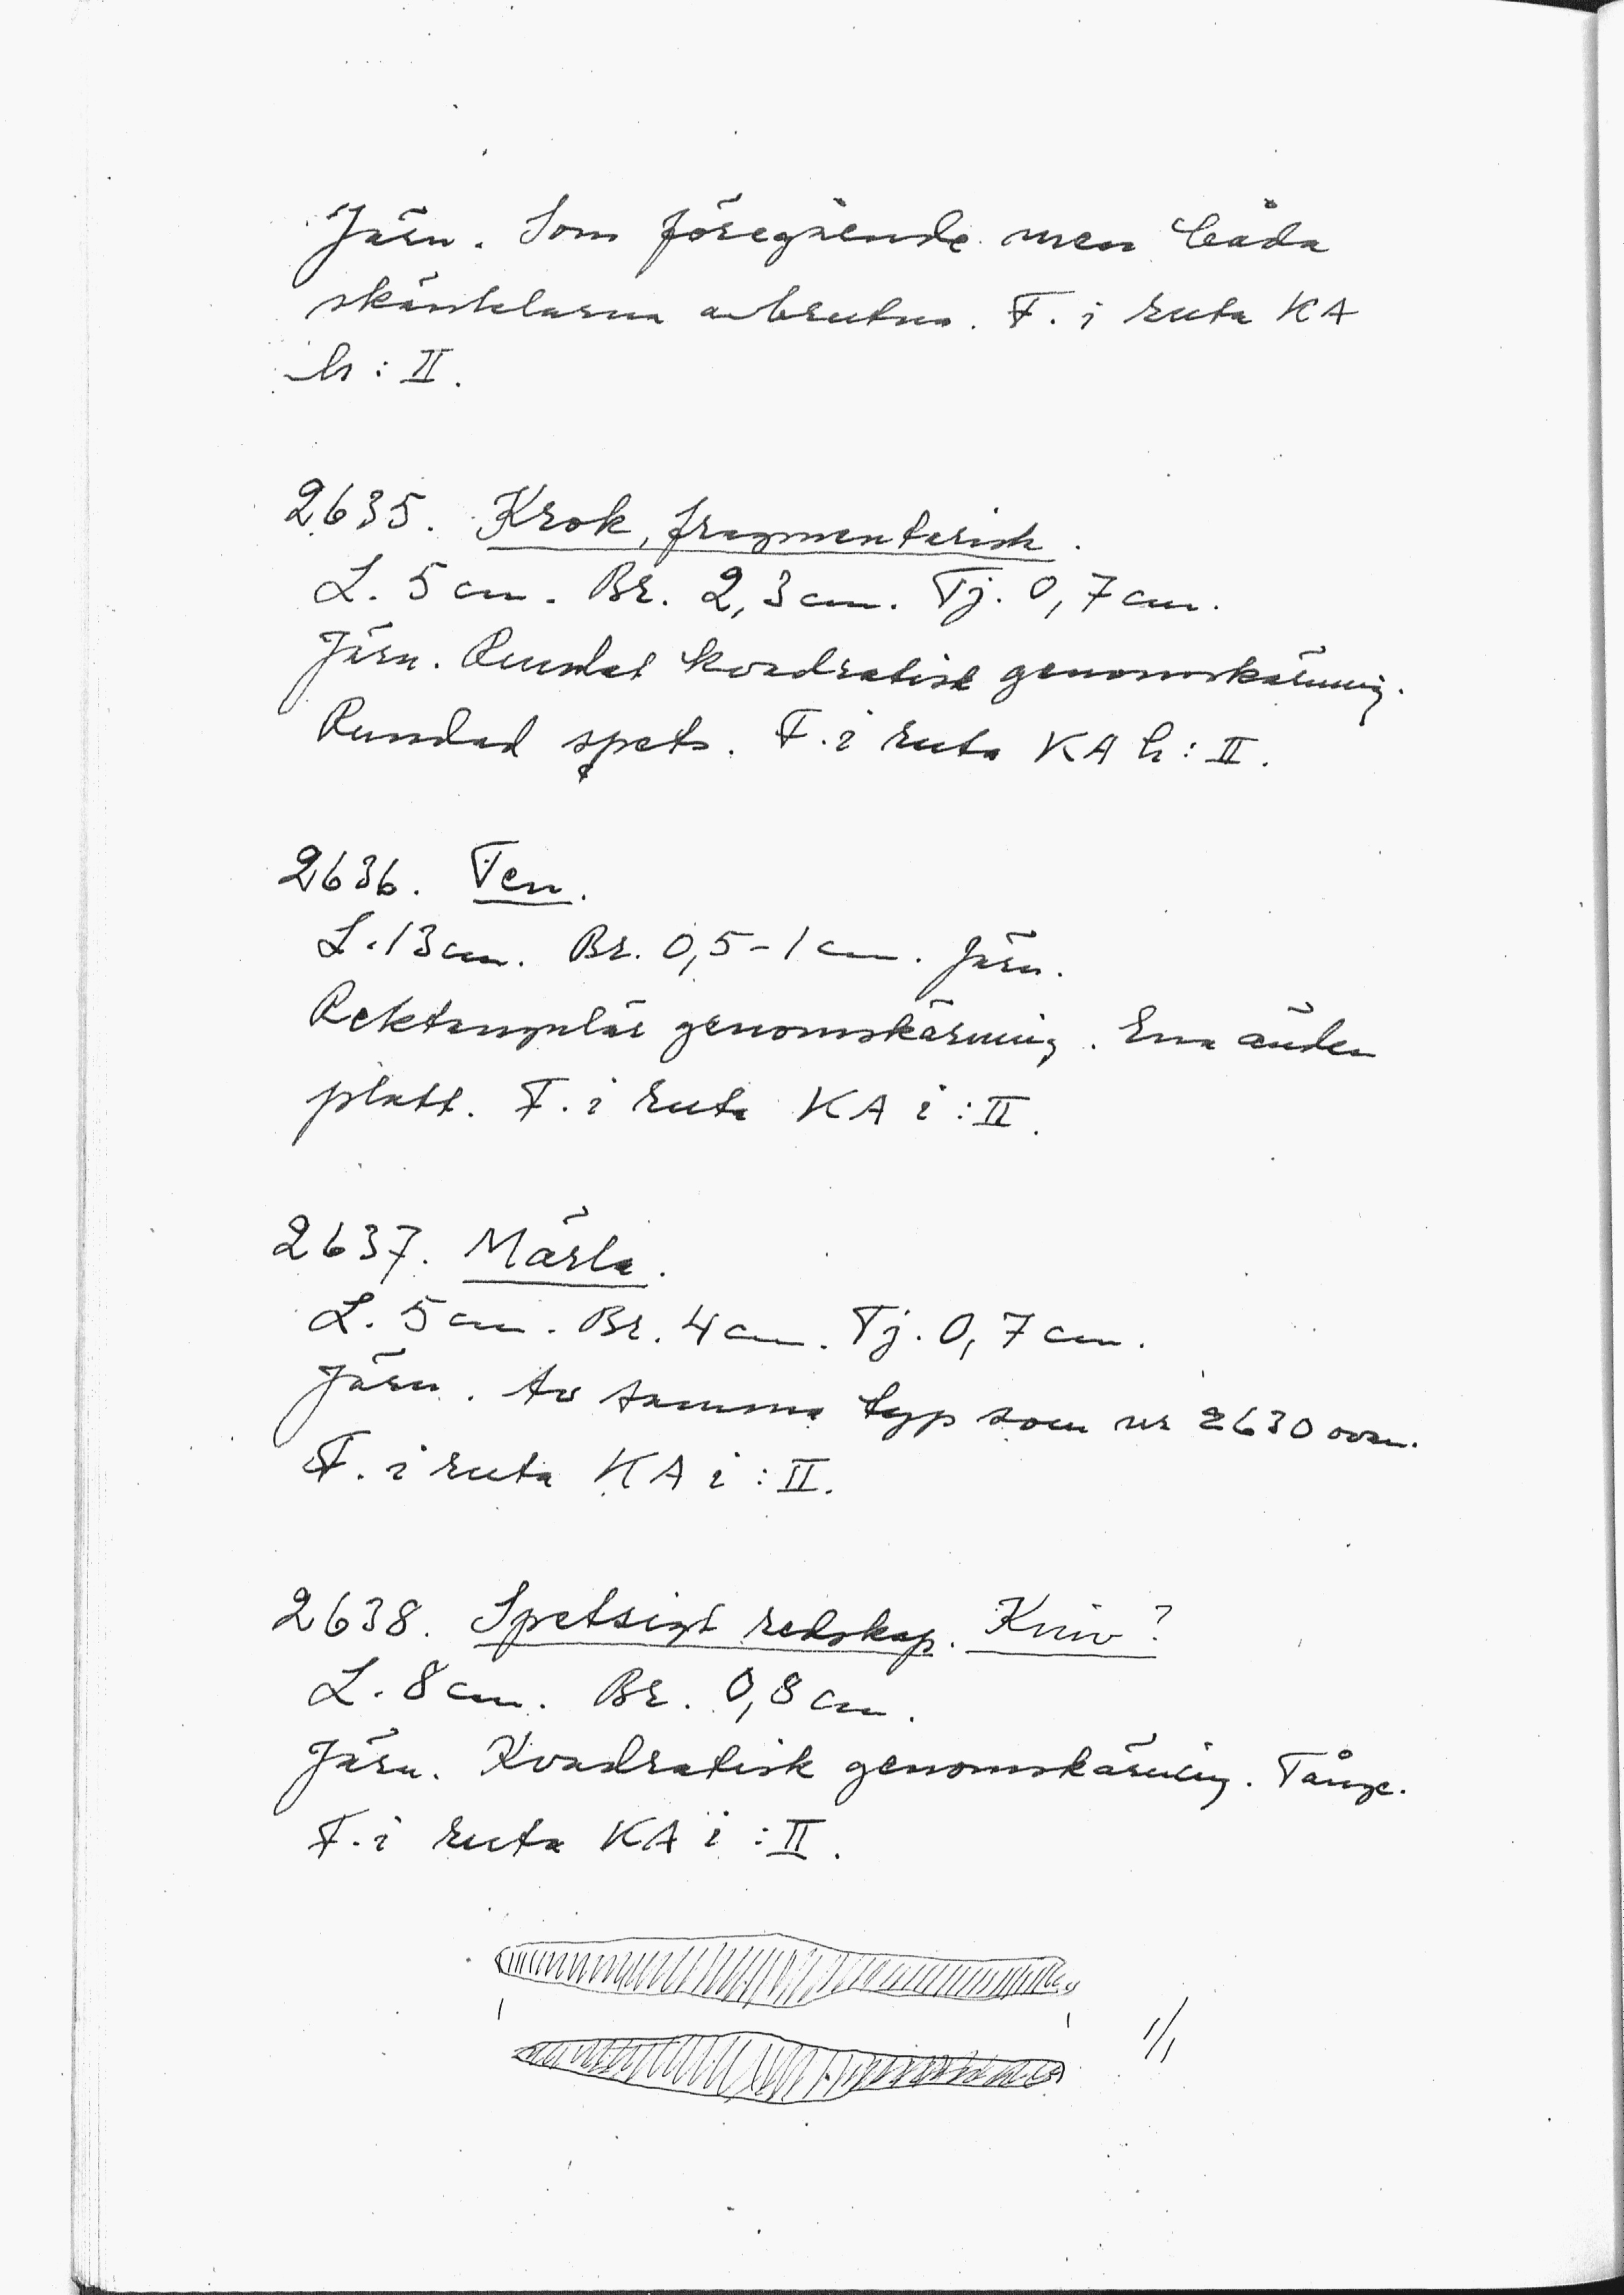 Järn. Som föregående men båda
skänklarna avbrutna. F. i ruta KA
h : II.
2635. Krok, fragmentarisk.
L. 5 cm. Br. 2,3 cm. Tj. 0,7 cm.
Järn. Rundat kvadratisk genomskärning.
Rundad spets. F. i ruta KA h : II.
2636. Ten.
L. 13 cm. Br. 0,5 - 1 cm. Järn.
Rektangulär genomskärning. Ena änden
platt. F. i ruta KA i : II.
2637. Märla.
L. 5 cm. Br. 4 cm. Tj. 0,7 cm.
Järn. Av samma typ som nr 2630 ovan.
F. i ruta KA i : II.
2638. Spetsigt redskap. Kniv?
L. 8 cm. Br. 0,8 cm.
Järn. Kvadratisk genomskärning. Tånge.
F. i ruta KA i : II.
1/1